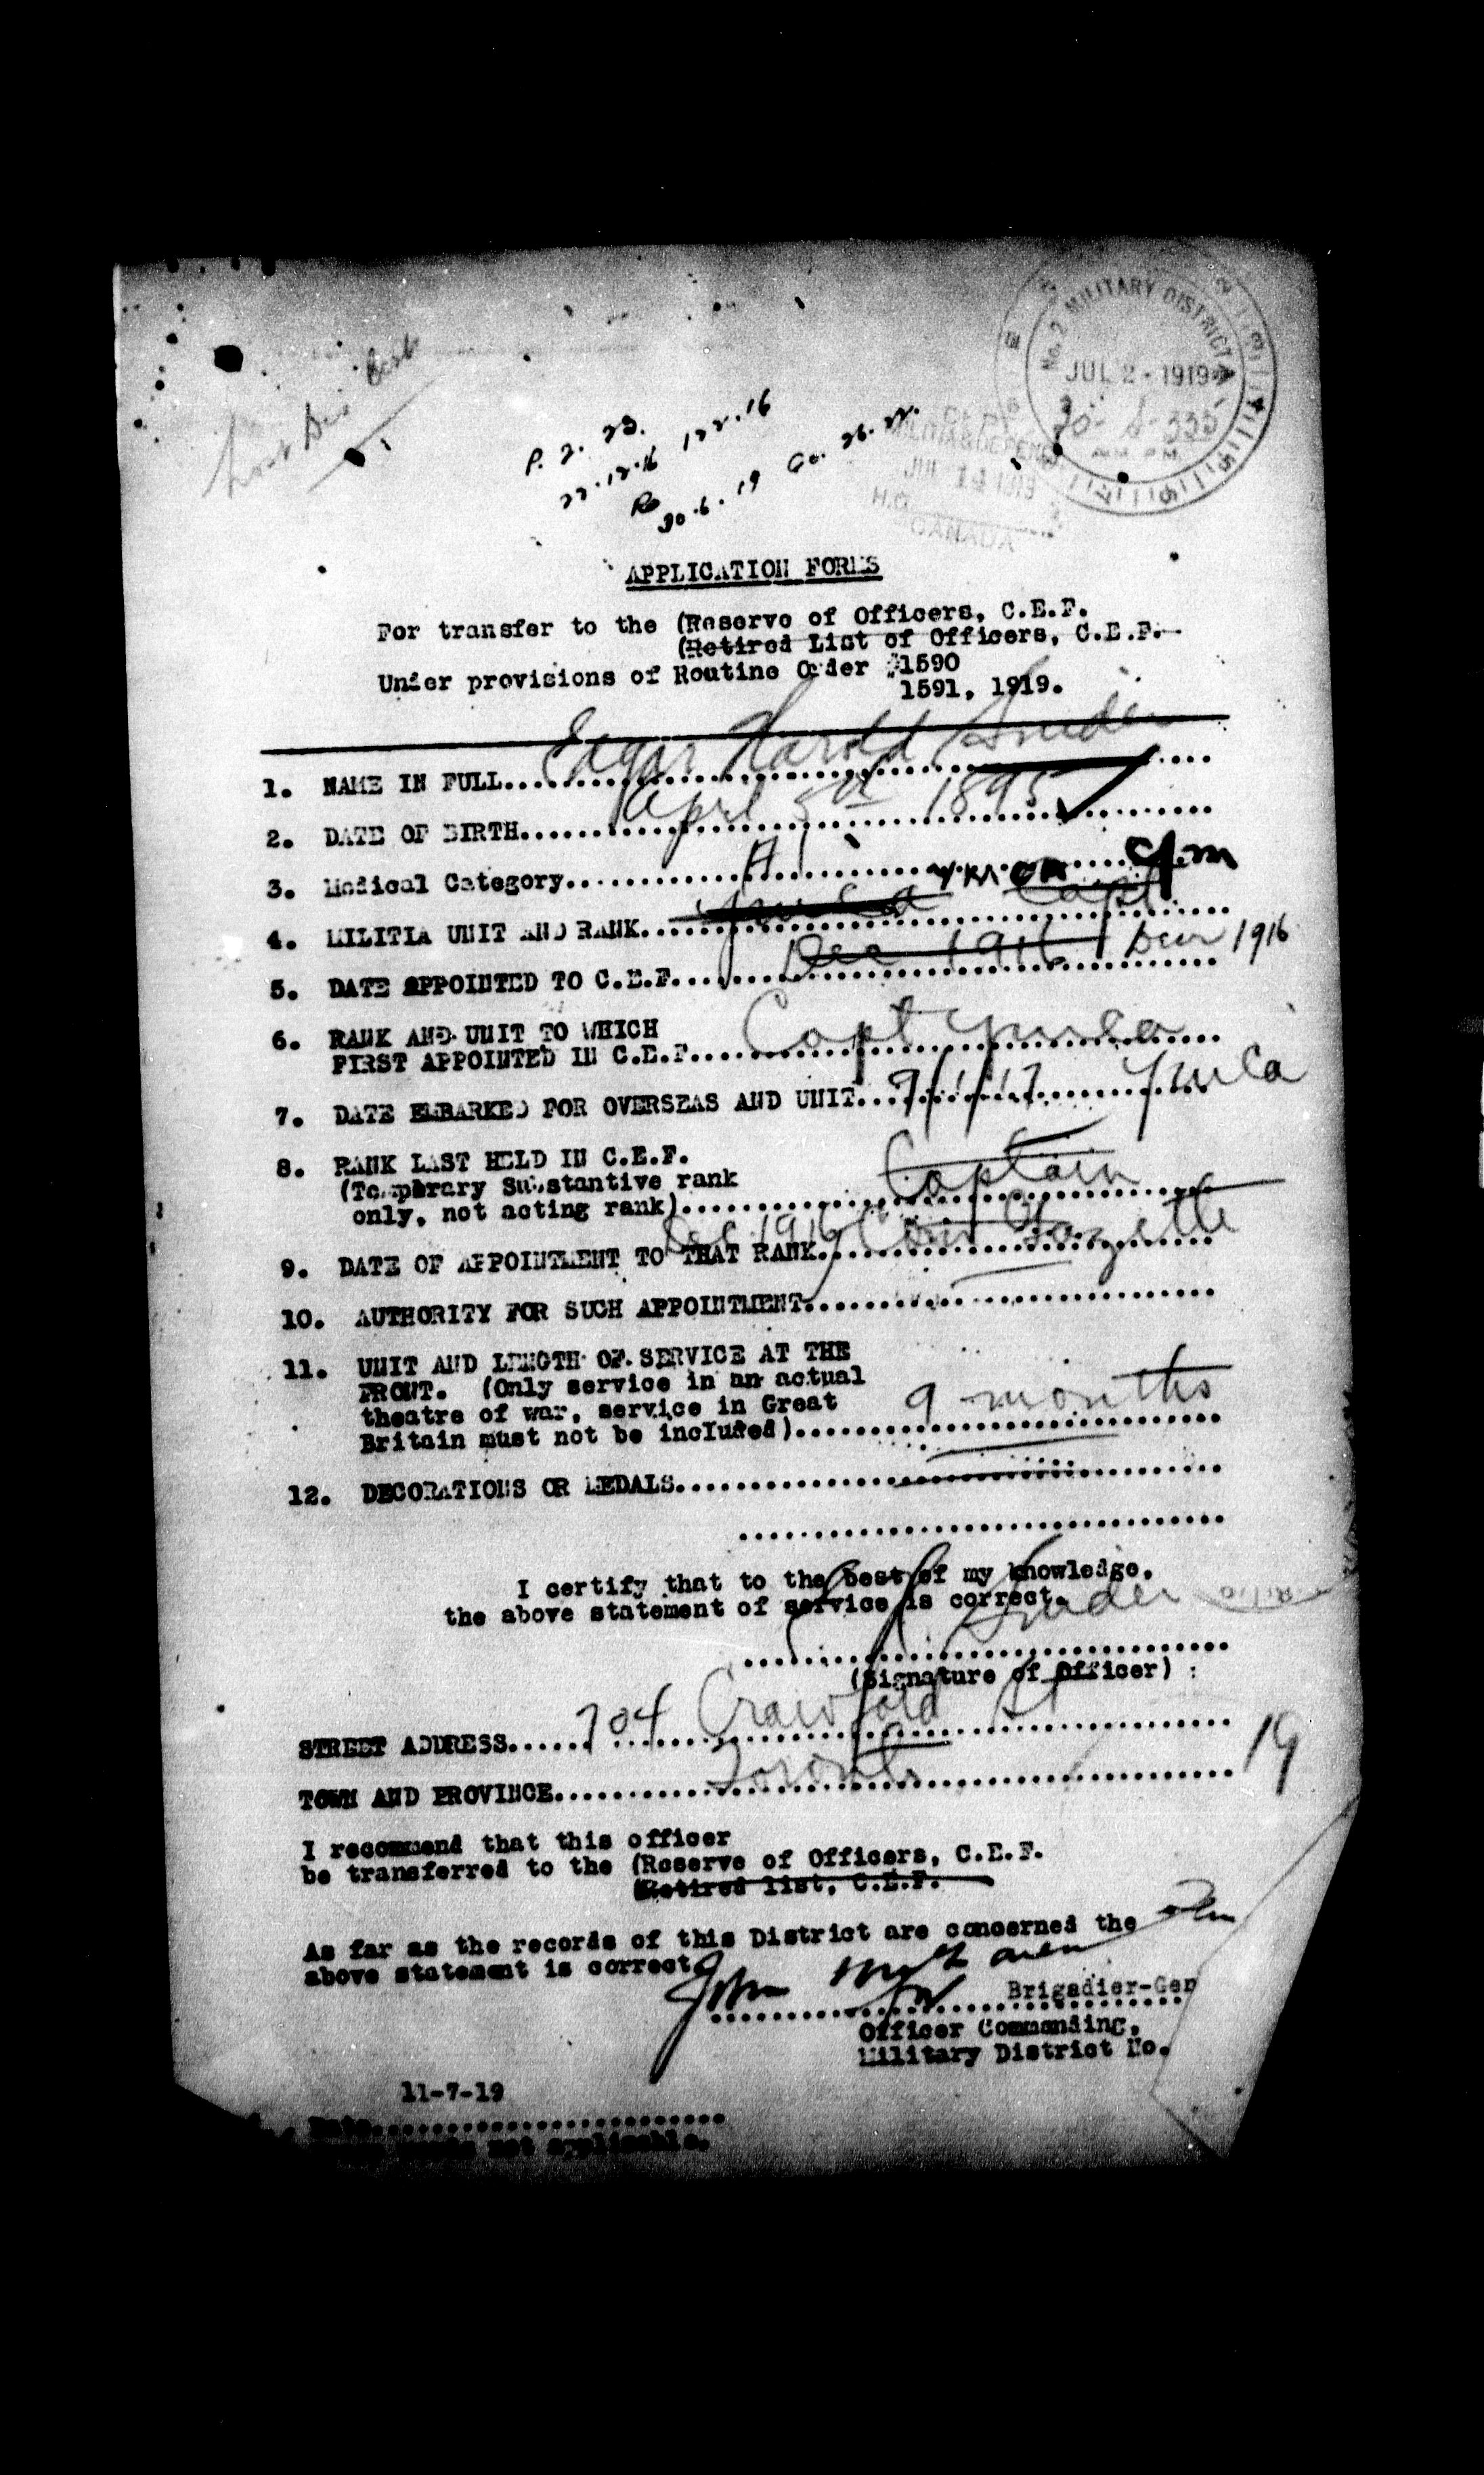 No. 2 MILITARY DISTRICT
JUL 2 - 1919
30-S-335
P. 2. 23.
22.12.16
30.6.19
MILITIA & DEFENCE
H.Q.
CANADA
APPLICATION FORMS
For transfer to the (Reserve of Officers, C.E.F.
(Retired List of Officers, C.E.F.
Under provisions of Routine Order #1590
1591, 1919.
1. NAME IN FULL Edgar Harold
2. DATE OF BIRTH April 5th 1895
3. Medical Category A1
4. MILITIA UNIT AND RANK Capt
5. DATE APPOINTED TO C.E.F. Dec 1916 1916
6. RANK AND UNIT TO WHICH
FIRST APPOINTED IN C.E.F. Capt ymca
7. DATE EMBARKED FOR OVERSEAS AND UNIT 9/1/17 Ymca
8. RANK LAST HELD IN C.E.F.
(Temporary Substantive rank
only, not acting rank) Captain
9. DATE OF APPOINTMENT TO THAT RANK Dec 1916 Gazette
10. AUTHORITY FOR SUCH APPOINTMENT
11. UNIT AND LENGTH OF SERVICE AT THE
FRONT. (Only service in an actual
theatre of war, service in Great
Britain must not be included) 9 months
12. DECORATIONS OR MEDALS
I certify that to the best of my knowledge,
the above statement of service is correct.
(Signature of Officer)
STREET ADDRESS 704 Crawford St
TOWN AND PROVINCE Toronto
19
I recommend that this officer
be transferred to the (Reserve of Officers, C.E.F.
(Retired list, C.E.F.
As far as the records of this District are concerned the
above statement is correct.
John
Brigadier-Gen
Officer Commanding,
Military District No.
11-7-19
Date
not applicable.